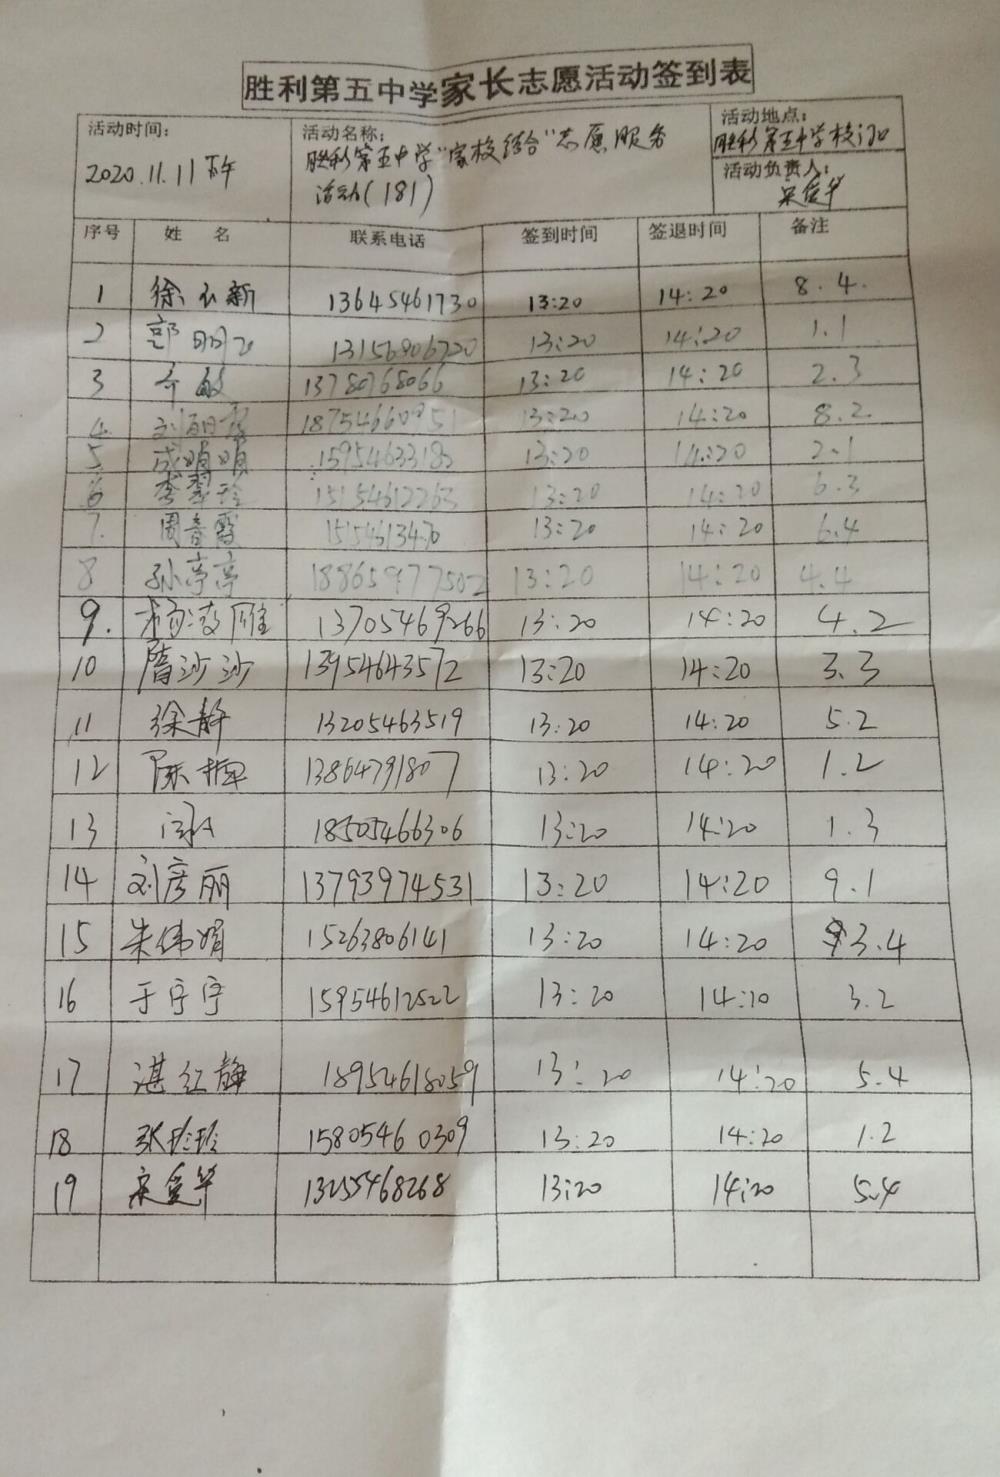 胜利第五中学家长志愿活动签到表
活动时间: 2020.11.11下午
活动名称: 胜利第五中学"家校结合"志愿服务
活动(181)
活动地点: 胜利第五中学校门口
活动负责人: 宋爱华
序号 姓 名 联系电话 签到时间 签退时间 备注
1 徐 新 13645461730 13:20 14:20 8.4.
2 郭明 13156906720 13:20 14:20 1.1
3 敏 13780768066 13:20 14:20 2.3
4. 刘丽 18754660951 13:20 14:20 8.2
5 成娟娟 15954633182 13:20 14:20 2.1
6 李翠玲 15154612263 13:20 14:20 6.3
7. 周春霞 13:20 14:20 6.4
8 孙亭亭 18865977502 13:20 14:20 4.4
9. 杨凌雁 13705469266 13:20 14:20 4.2
10 隋沙沙 13954643572 13:20 14:20 3.3
11 徐静 13205463519 13:20 14:20 5.2
12 13864791807 13:20 14:20 1.2
13 18505466306 13:20 14:20 1.3
14 刘彦丽 13793974531 13:20 14:20 9.1
15 朱伟娟 15263806141 13:20 14:20 3.4
16 于宁宁 15954612522 13:20 14:10 3.2
17 湛红静 18954618059 13:20 14:20 5.4
18 张玲玲 15805460309 13:20 14:20 1.2
19 宋爱华 13255468268 13:20 14:20 5.4